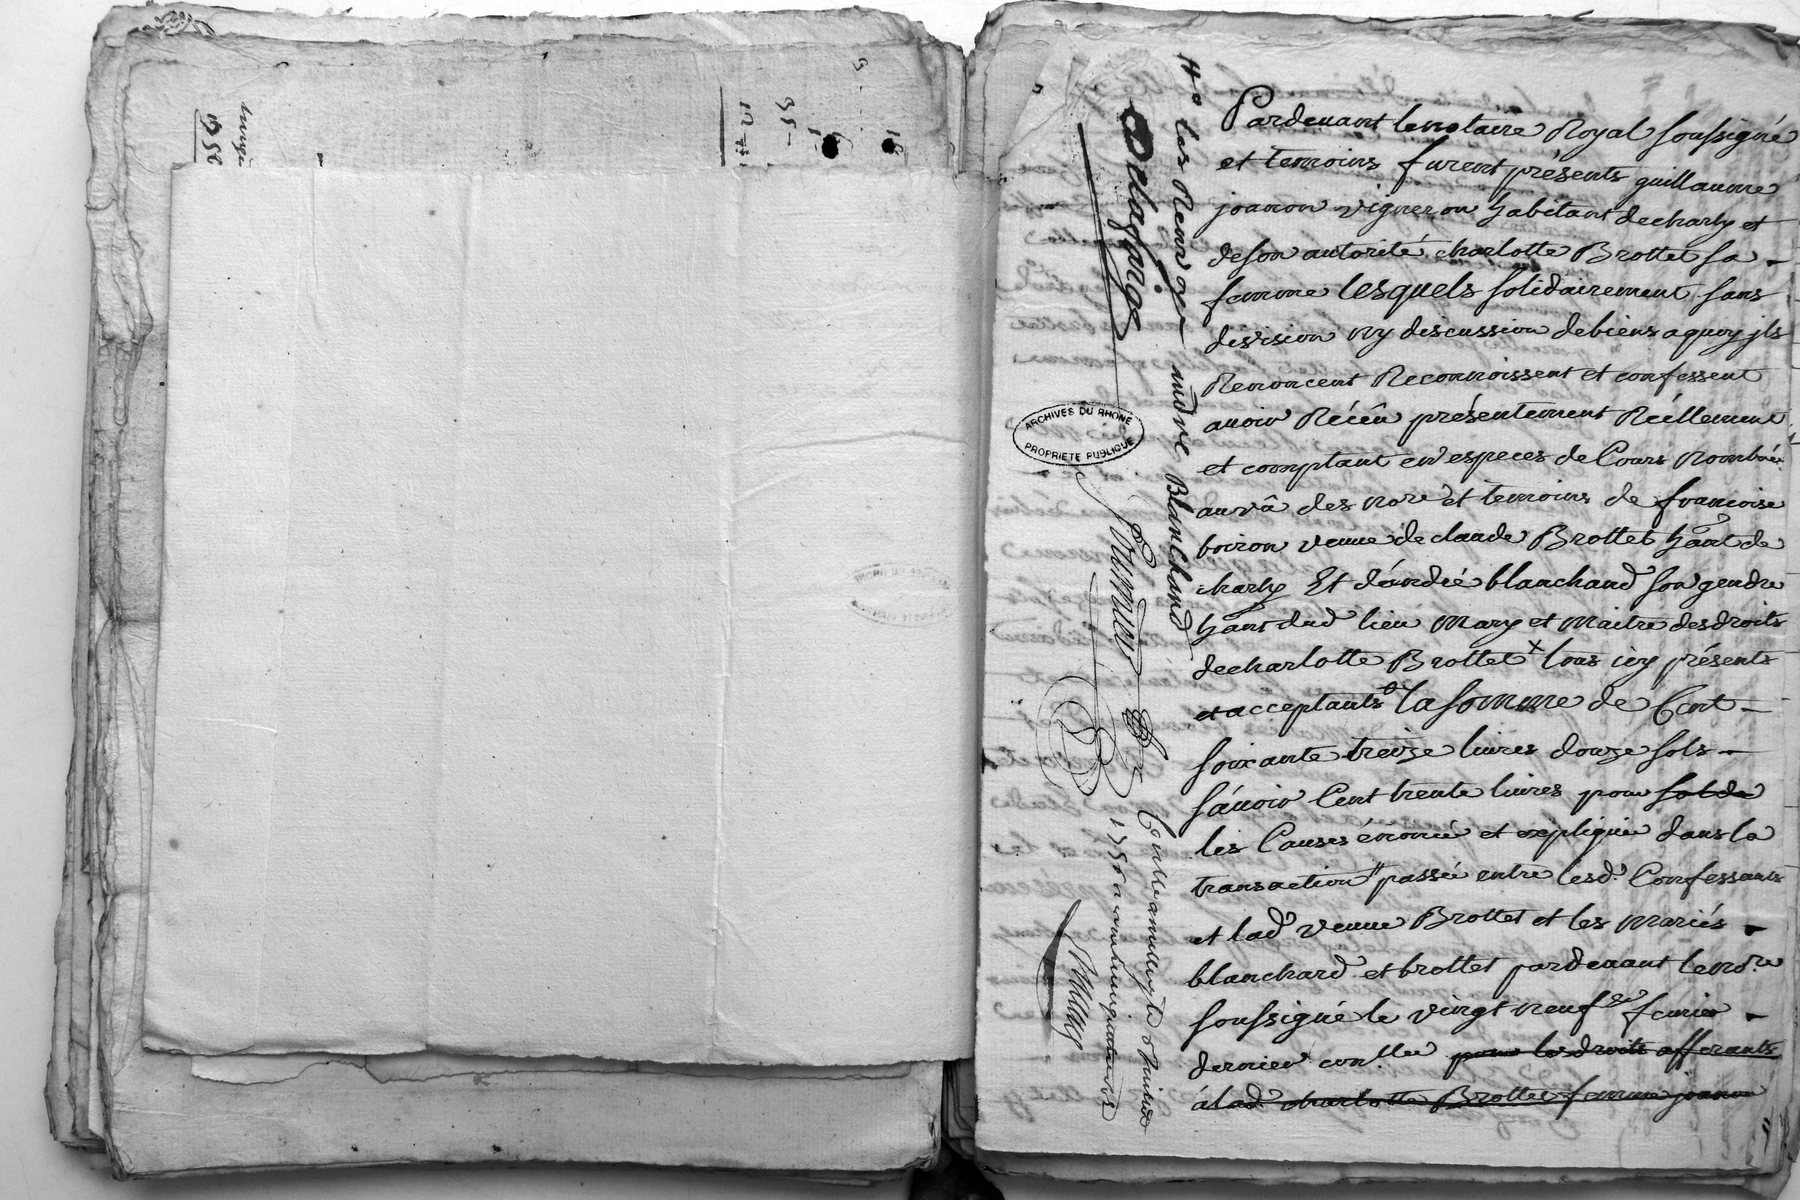 Pardevant le notaire Royal soussigné
et temoins furent présents guillaume
joanon vigneron habitant de charly et
de son autorité charlotte Brottet sa
femme lesquels solidairement sans
division ny discussion de biens a quoy jls
Renoncent Reconnoissent et confessent
auoir Récêu présentement Réellement
et comptant en especes de Cours Nombré
au vû des nore et temoins de francoise
boiron veuue de claude Brottet hant de
charly Et d'andré blanchard son gendre
hant dud lieu Mary et Maitre des droits
de charlotte Brottet x tous icy présents
et acceptants la somme de Cent
soixante treize liures douze sols
sáuoir Cent trente liures pour solde
les Causes énoncé et expliquée dans la
transaction passée entre lesd. Confessants
et lad veuue Brottet et les Mariés
blanchard et brottet pardeuant le nore
soussigné le vingt neuf feurier
dernier con.llée pour les droits afferants
á lad charlotte Brottet femme joanon
les Renvoyer andre Blanchard
delaforge
ARCHIVES DU RHONE
PROPRIETE PUBLIQUE